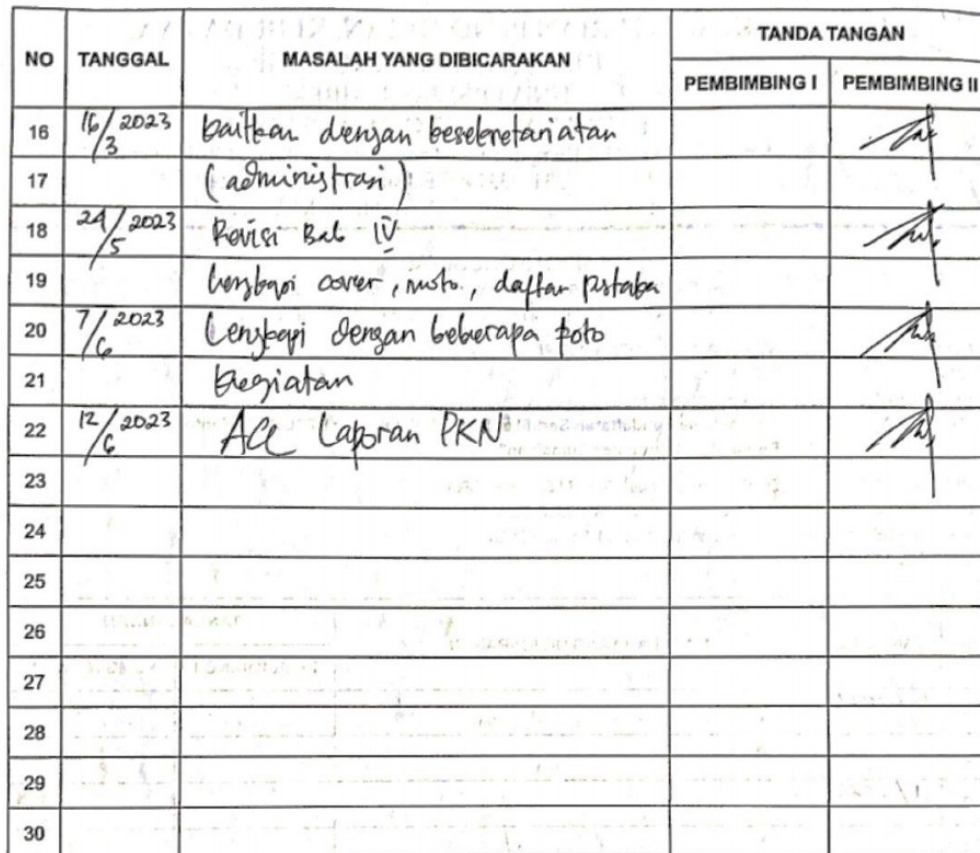 NO TANGGAL MASALAH YANG DIBICARAKAN TANDA TANGAN
PEMBIMBING I PEMBIMBING II
16 16/3 2023 kaitkan dengan kesekretariatan
17 (administrasi)
18 24/5 2023 Revisi Bab IV
19 lengkapi cover, moto, daftar pstaka
20 7/6 2023 Lengkapi dengan beberapa foto
21 kegiatan
22 12/6 2023 ACC Laporan PKN
23
24
25
26
27
28
29
30